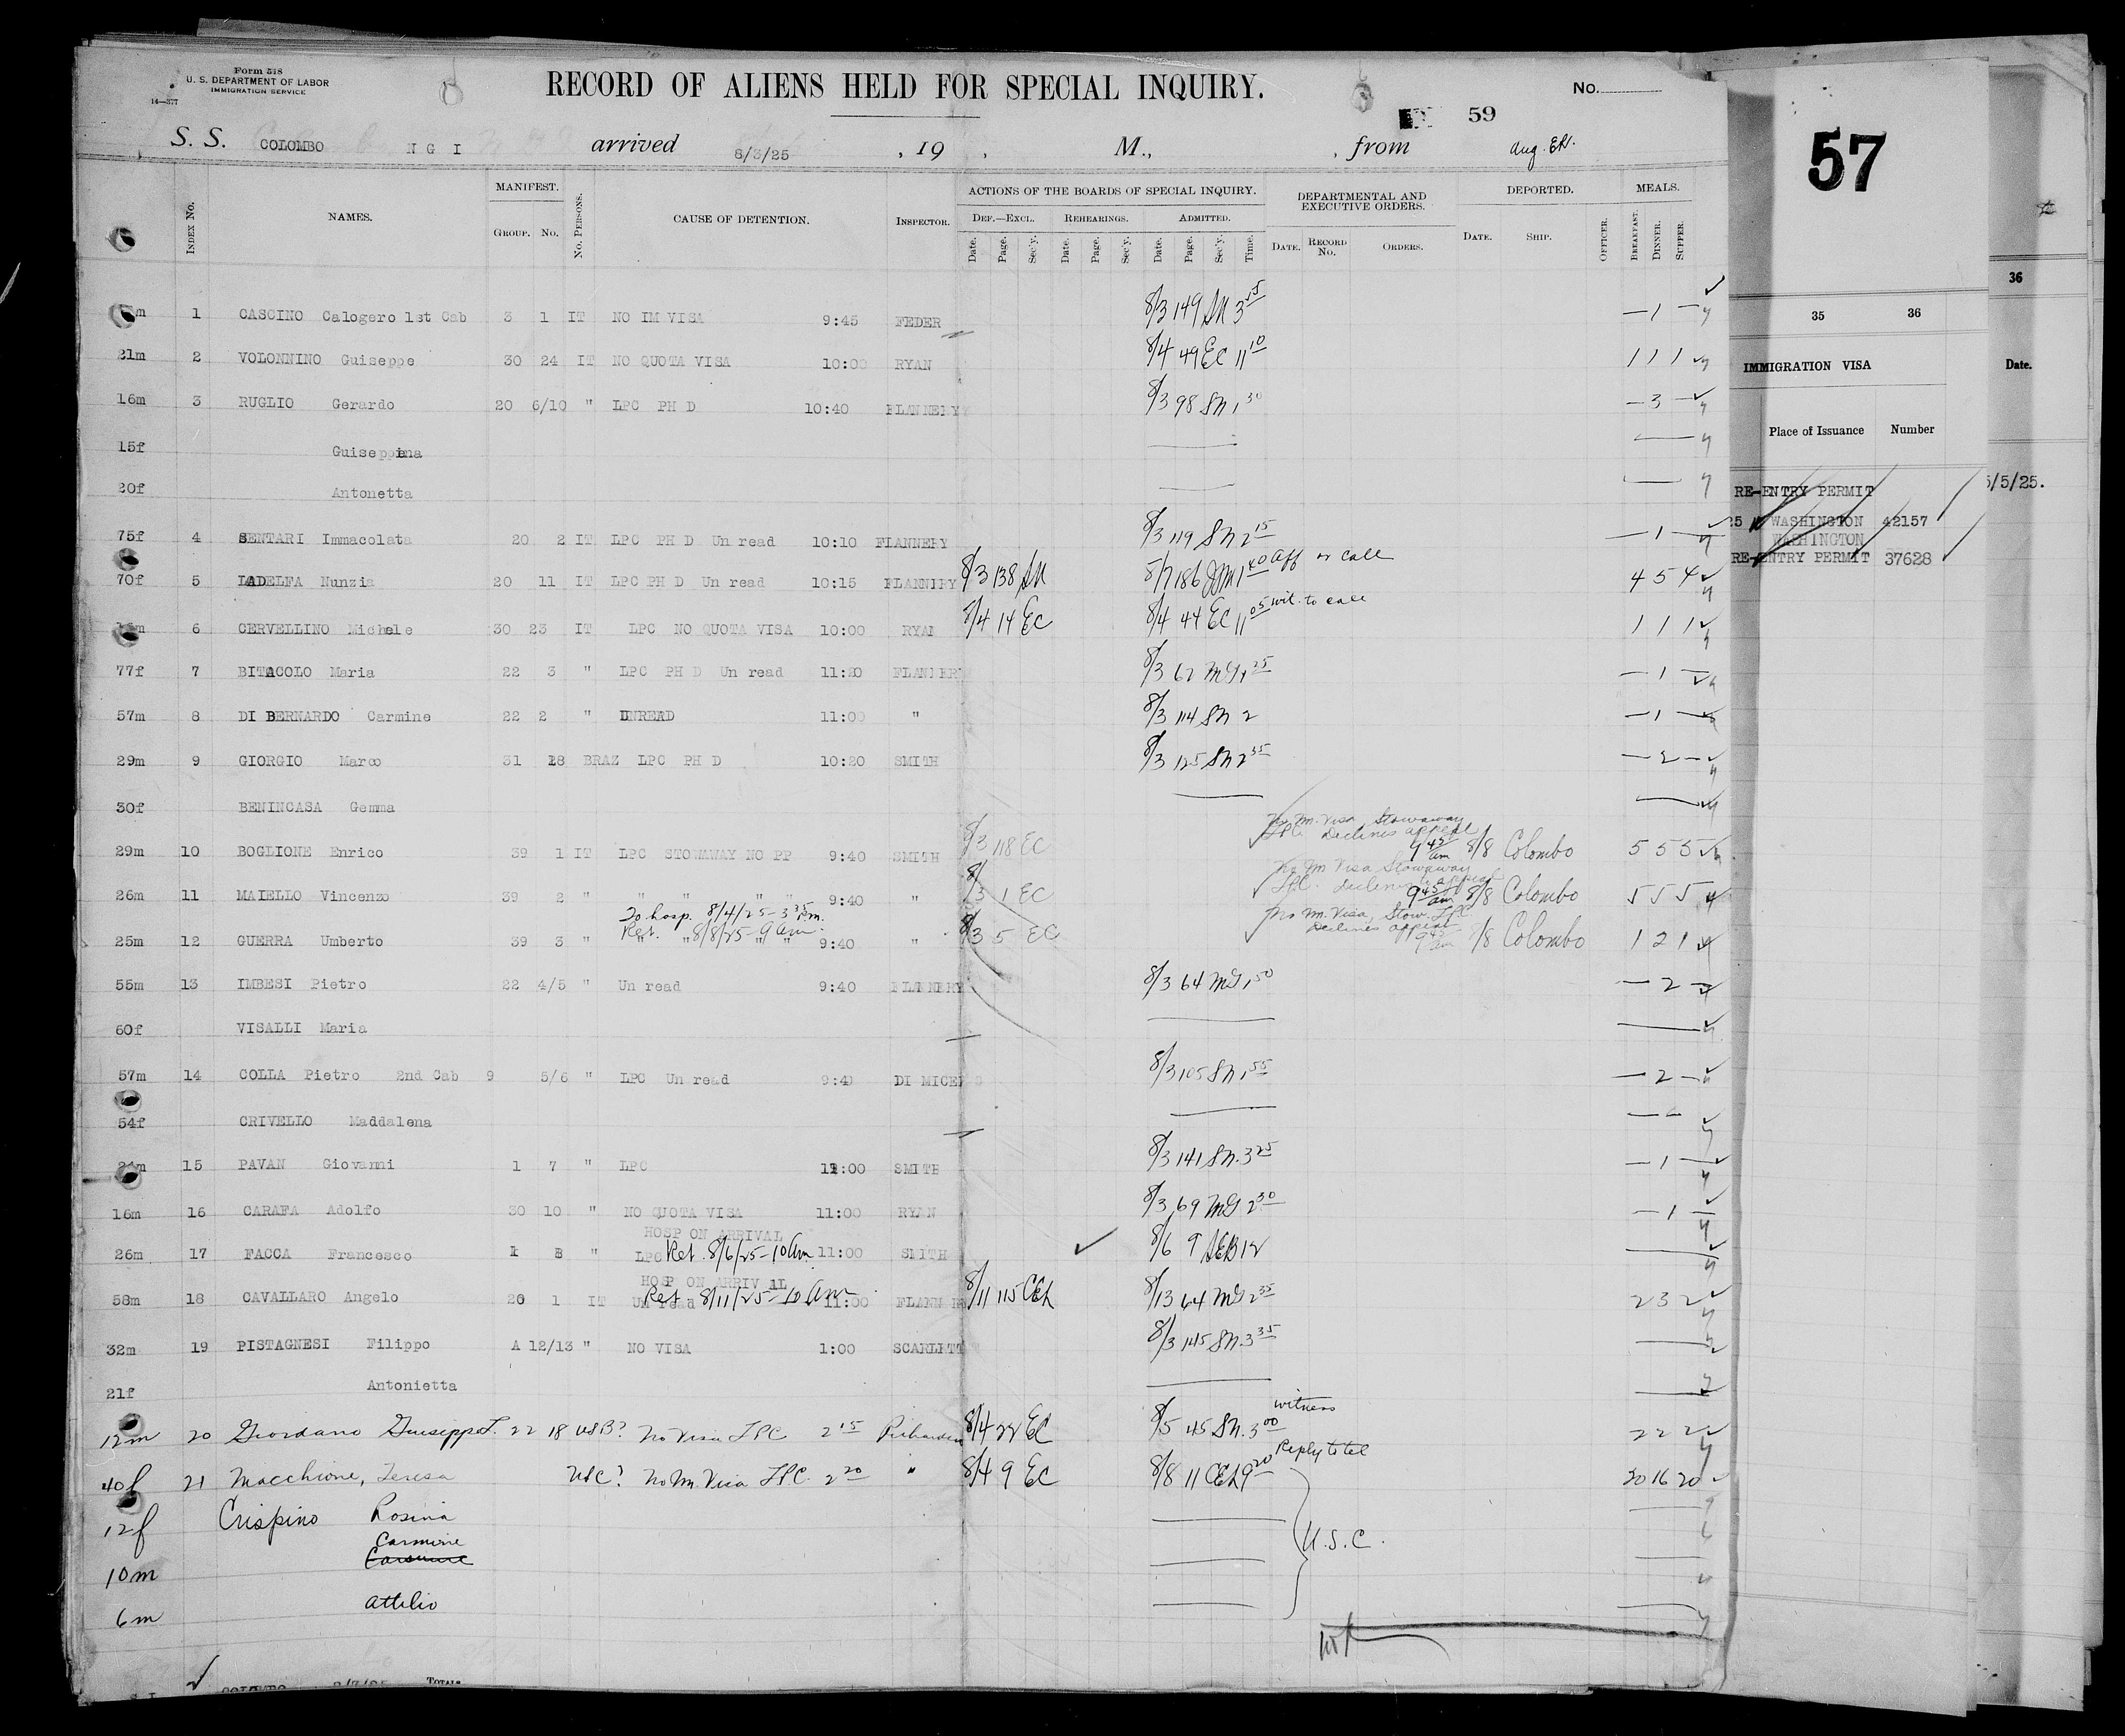 Form 518
U. S. DEPARTMENT OF LABOR
IMMIGRATION SERVICE
14—377
RECORD OF ALIENS HELD FOR SPECIAL INQUIRY.
No.
59
S. S. COLOMBO N G I arrived 8/3/25 , 19 , M., , from Aug. EH.
Index No. NAMES. MANIFEST. Group. No. No. Persons. CAUSE OF DETENTION. Inspector. ACTIONS OF THE BOARDS OF SPECIAL INQUIRY. Def.—Excl. Rehearings. Admitted. DEPARTMENTAL AND EXECUTIVE ORDERS. DEPORTED. MEALS.
Date. Page. Sec'y. Date. Page. Sec'y. Date. Page. Sec'y. Time. Date. Record No. Orders. Date. Ship. Officer. Breakfast. Dinner. Supper.
1 CASCINO Calogero 1st Cab 3 1 IT NO IM VISA 9:45 FEDER 8/3 149 SN 3 15 — 1 —
21m 2 VOLONNINO Guiseppe 30 24 IT NO QUOTA VISA 10:00 RYAN 8/4 49 EC 11 10 1 1 1
16m 3 RUGLIO Gerardo 20 6/10 " LPC PH D 10:40 FLANNERY 8/3 98 SN 1 30 — 3 —
15f Guiseppina
20f Antonetta
75f 4 SENTARI Immacolata 20 2 IT LPC PH D Un read 10:10 FLANNERY 8/3 119 SN 2 15 — 1 —
70f 5 LADELFA Nunzia 20 11 IT LPC PH D Un read 10:15 FLANNERY 8/3 138 SN 8/7 186 JM 1 40 aff or call 4 5 4
6 CERVELLINO Michele 30 23 IT LPC NO QUOTA VISA 10:00 RYAN 8/4 14 EC 8/4 44 EC 11 05 wit. to call 1 1 1
77f 7 BITACOLO Maria 22 3 " LPC PH D Un read 11:20 FLANNERY 8/3 62 MG 1 25 — 1 —
57m 8 DI BERNARDO Carmine 22 2 " UNREAD 11:00 " 8/3 114 SN 2 — 1 —
29m 9 GIORGIO Marco 31 18 BRAZ LPC PH D 10:20 SMITH 8/3 125 SN 2 35 — 2 —
30f BENINCASA Gemma
No Im. Visa, Stowaway
LPC Declines appeal
29m 10 BOGLIONE Enrico 39 1 IT LPC STOWAWAY NO PP 9:40 SMITH 8/3 118 EC 9 45 am 8/8 Colombo 5 5 5
No Im Visa Stowaway
LPC. Declines appeal
26m 11 MAIELLO Vincenzo 39 2 " " " " " 9:40 " 8/3 1 EC 9 45 am 8/8 Colombo 5 5 5
To hosp. 8/4/25 - 3 35 Pm.
No Im. Visa, Stow. LPC
Ret. 8/8/25 - 9 am.
Declines appeal
25m 12 GUERRA Umberto 39 3 " " " " " 9:40 " 8/3 5 EC 9 45 am 8/8 Colombo 1 2 1
55m 13 IMBESI Pietro 22 4/5 " Un read 9:40 FLANNERY 8/3 64 MG 1 50 — 2 —
60f VISALLI Maria
57m 14 COLLA Pietro 2nd Cab 9 5/6 " LPC Un read 9:40 DI MICELI 8/3 105 SN 1 55 — 2 —
54f CRIVELLO Maddalena
15 PAVAN Giovanni 1 7 " LPC 11:00 SMITH 8/3 141 SN. 3 25 — 1 —
16m 16 CARAFA Adolfo 30 10 " NO QUOTA VISA 11:00 RYAN 8/3 69 MG 2 30 — 1 —
HOSP ON ARRIVAL
26m 17 FACCA Francesco 1 8 " LPC Ret. 8/6/25 - 10 am. 11:00 SMITH 8/6 9 SEB 12
HOSP ON ARRIVAL
58m 18 CAVALLARO Angelo 20 1 IT Un read Ret 8/11/25 - 10 am 11:00 FLANNERY 8/11 115 CEL 8/13 64 MG 2 35 2 3 2
32m 19 PISTAGNESI Filippo A 12/13 " NO VISA 1:00 SCARLETT 8/3 145 SN. 3 35
21f Antonietta
12m 20 Giordano Guiseppe 22 18 USB? No Visa LPC 2 15 Richardson 8/4 22 EC 8/5 45 SN. 3 00 witness 2 2 2
40f 21 Macchione, Teresa USC? No Im Visa LPC. 2 20 " 8/4 9 EC 8/8 11 CEL 9 20 Reply to tel 20 16 20
12f Crispino Rosina
U.S.C.
Carmine
10m
6m Attilio
COLOMBO 8/3/25 Total:
57
36
35 36
IMMIGRATION VISA Date.
Place of Issuance Number
RE-ENTRY PERMIT 5/5/25.
25 WASHINGTON 42157
WASHINGTON
RE-ENTRY PERMIT 37628